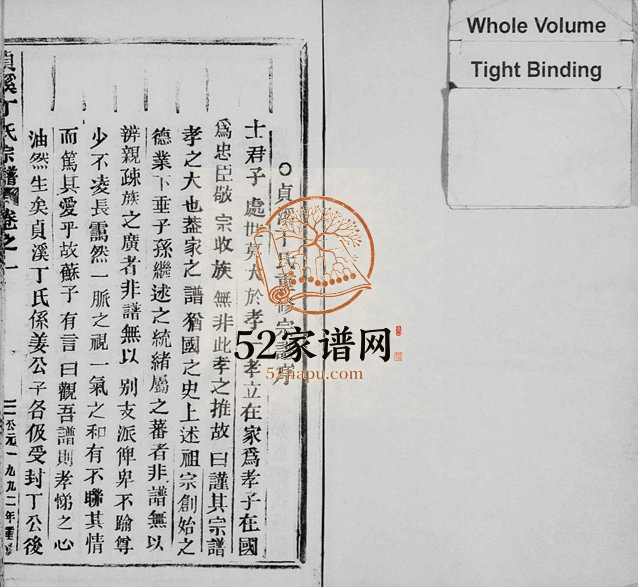 Whole Volume
Tight Binding
貞溪丁氏重修宗譜序
士君子處世莫大於孝孝立在家爲孝子在國
爲忠臣敬宗收族無非此孝之推故曰謹其宗譜
孝之大也蓋家之譜猶國之史上述祖宗創始之
德業下垂子孫繼述之統緒屬之蕃者非譜無以
辨親疎族之廣者非譜無以別支派俾卑不踰尊
少不凌長靄然一脈之視一氣之和有不聯其情
而篤其愛乎故蘇子有言曰觀吾譜則孝悌之心
油然生矣貞溪丁氏係姜公子各伋受封丁公後
貞溪丁氏宗譜 卷之一
公元一九九二年重修
52家谱网
52jiapu.com